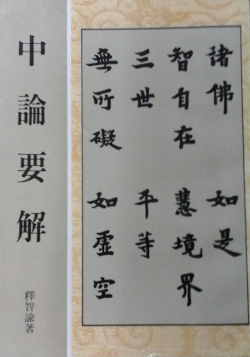 諸佛 如是
智自在 慧境界
三世 平等
無所礙 如虛空
中論要解
釋智諭著